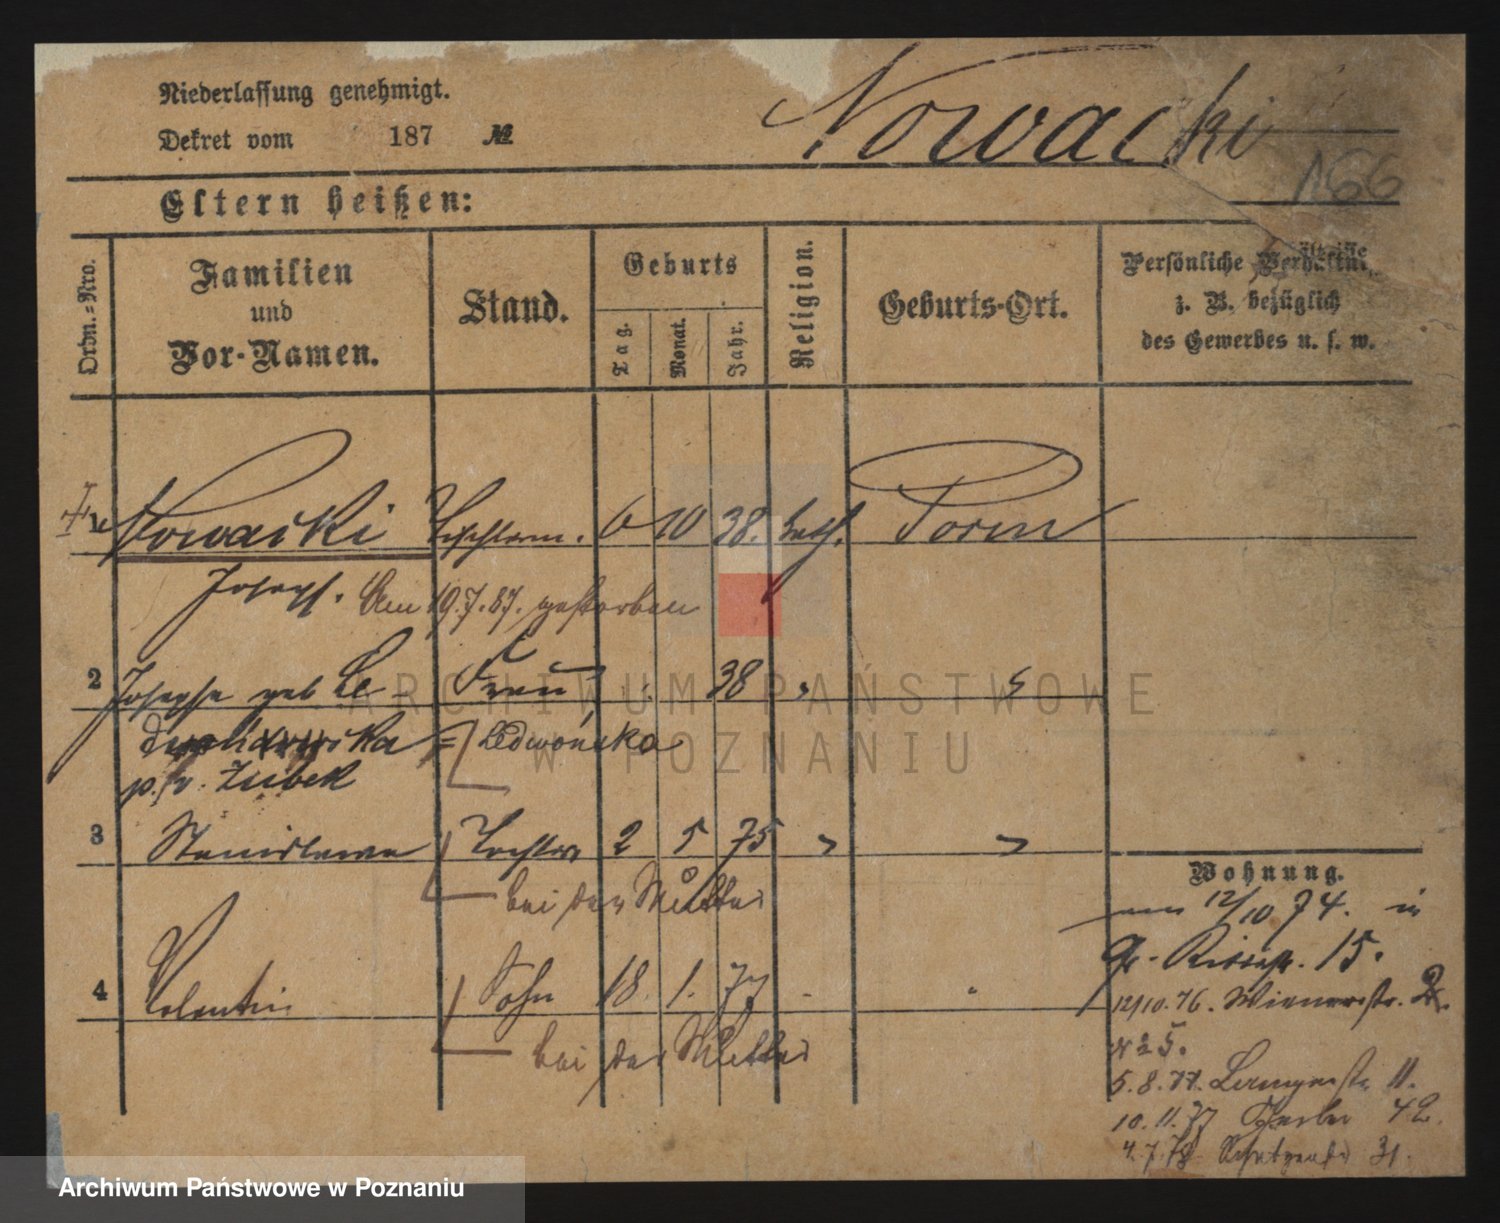 Niederlassung genehmigt.
Dekret vom 187 №
Nowacki
166
Eltern heißen:
Ordn.-Nro.
Familien und Vor-Namen.
Stand.
Geburts
Tag.
Monat.
Jahr.
Religion.
Geburts-Ort.
Persönliche Verhältnisse z. B. bezüglich des Gewerbes u. s. w.
1 Nowacki 6 10 38. kath. Posen
Joseph. Am 19.7.87. gestorben
2 Josepha geb Frau 38
= Ledwońska
Zubek
3 Stanislawa Tochter 2 5 75
bei der Mutter
4 Valentin Sohn 18. 1. 77
bei der Mutter
Wohnung.
12/10 74. in
gr. Ritterstr. 15.
12/10.76. Wienerstr. 2.
5.
5.8.77. 11.
10.11.77 42.
4.7.78 Schützenstr 31.
ARCHIWUM PAŃSTWOWE
W POZNANIU
Archiwum Państwowe w Poznaniu